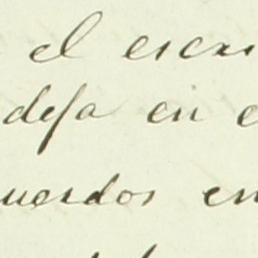 el escri
deja en e
uerdos en